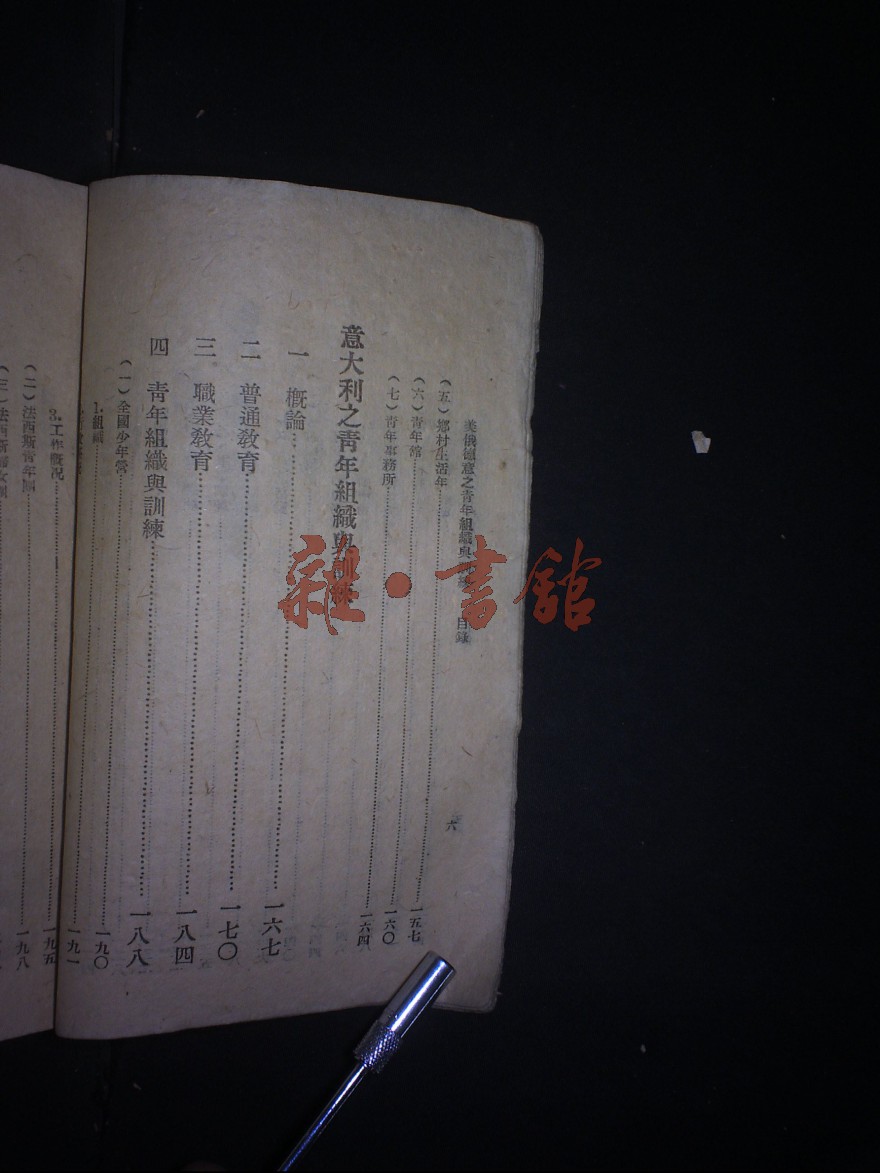 美俄德意之青年組織與訓練 目錄
六
(五)鄉村生活年……一五七
(六)青年館……一六〇
(七)青年事務所……一六四
意大利之青年組織與訓練
一 概論……一六七
二 普通教育……一七〇
三 職業教育……一八四
四 青年組織與訓練……一八八
(一)全國少年營……一九〇
1.組織……一九〇
一九一
3.工作概況……一九五
(二)法西斯青年團……一九八
雜·書館